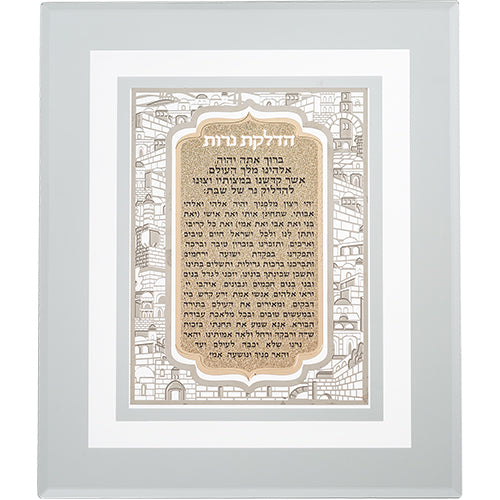 הדלקת נרות
ברוך אתה יהוה,
אלהינו מלך העולם
אשר קדשנו במצותיו וצונו
להדליק נר של שבת:
יהי רצון מלפניך יהוה אלהי ואלהי
אבותי, שתחונן אותי ואת אישי (ואת
בני ואת אבי ואת אמי) ואת כל קרובי,
ותתן לנו ולכל ישראל חיים טובים
וארכים, ותזכרנו בזכרון טובה וברכה
ותפקדנו בפקדת ישועה ורחמים
ותברכנו ברכות גדולות, ותשלים בתינו
ותשכן שכינתך בינינו. וזכני לגדל בנים
ובני בנים חכמים ונבונים, אוהבי יי
יראי אלהים, אנשי אמת, זרע קדש, ביי
דבקים, ומאירים את העולם בתורה
ובמעשים טובים, ובכל מלאכת עבודת
הבורא. אנא שמע את תחנתי, בזכות
שרה ורבקה ורחל ולאה אמותינו, והאר
נרנו שלא יכבה לעולם ועד,
והאר פניך ונושעה, אמן